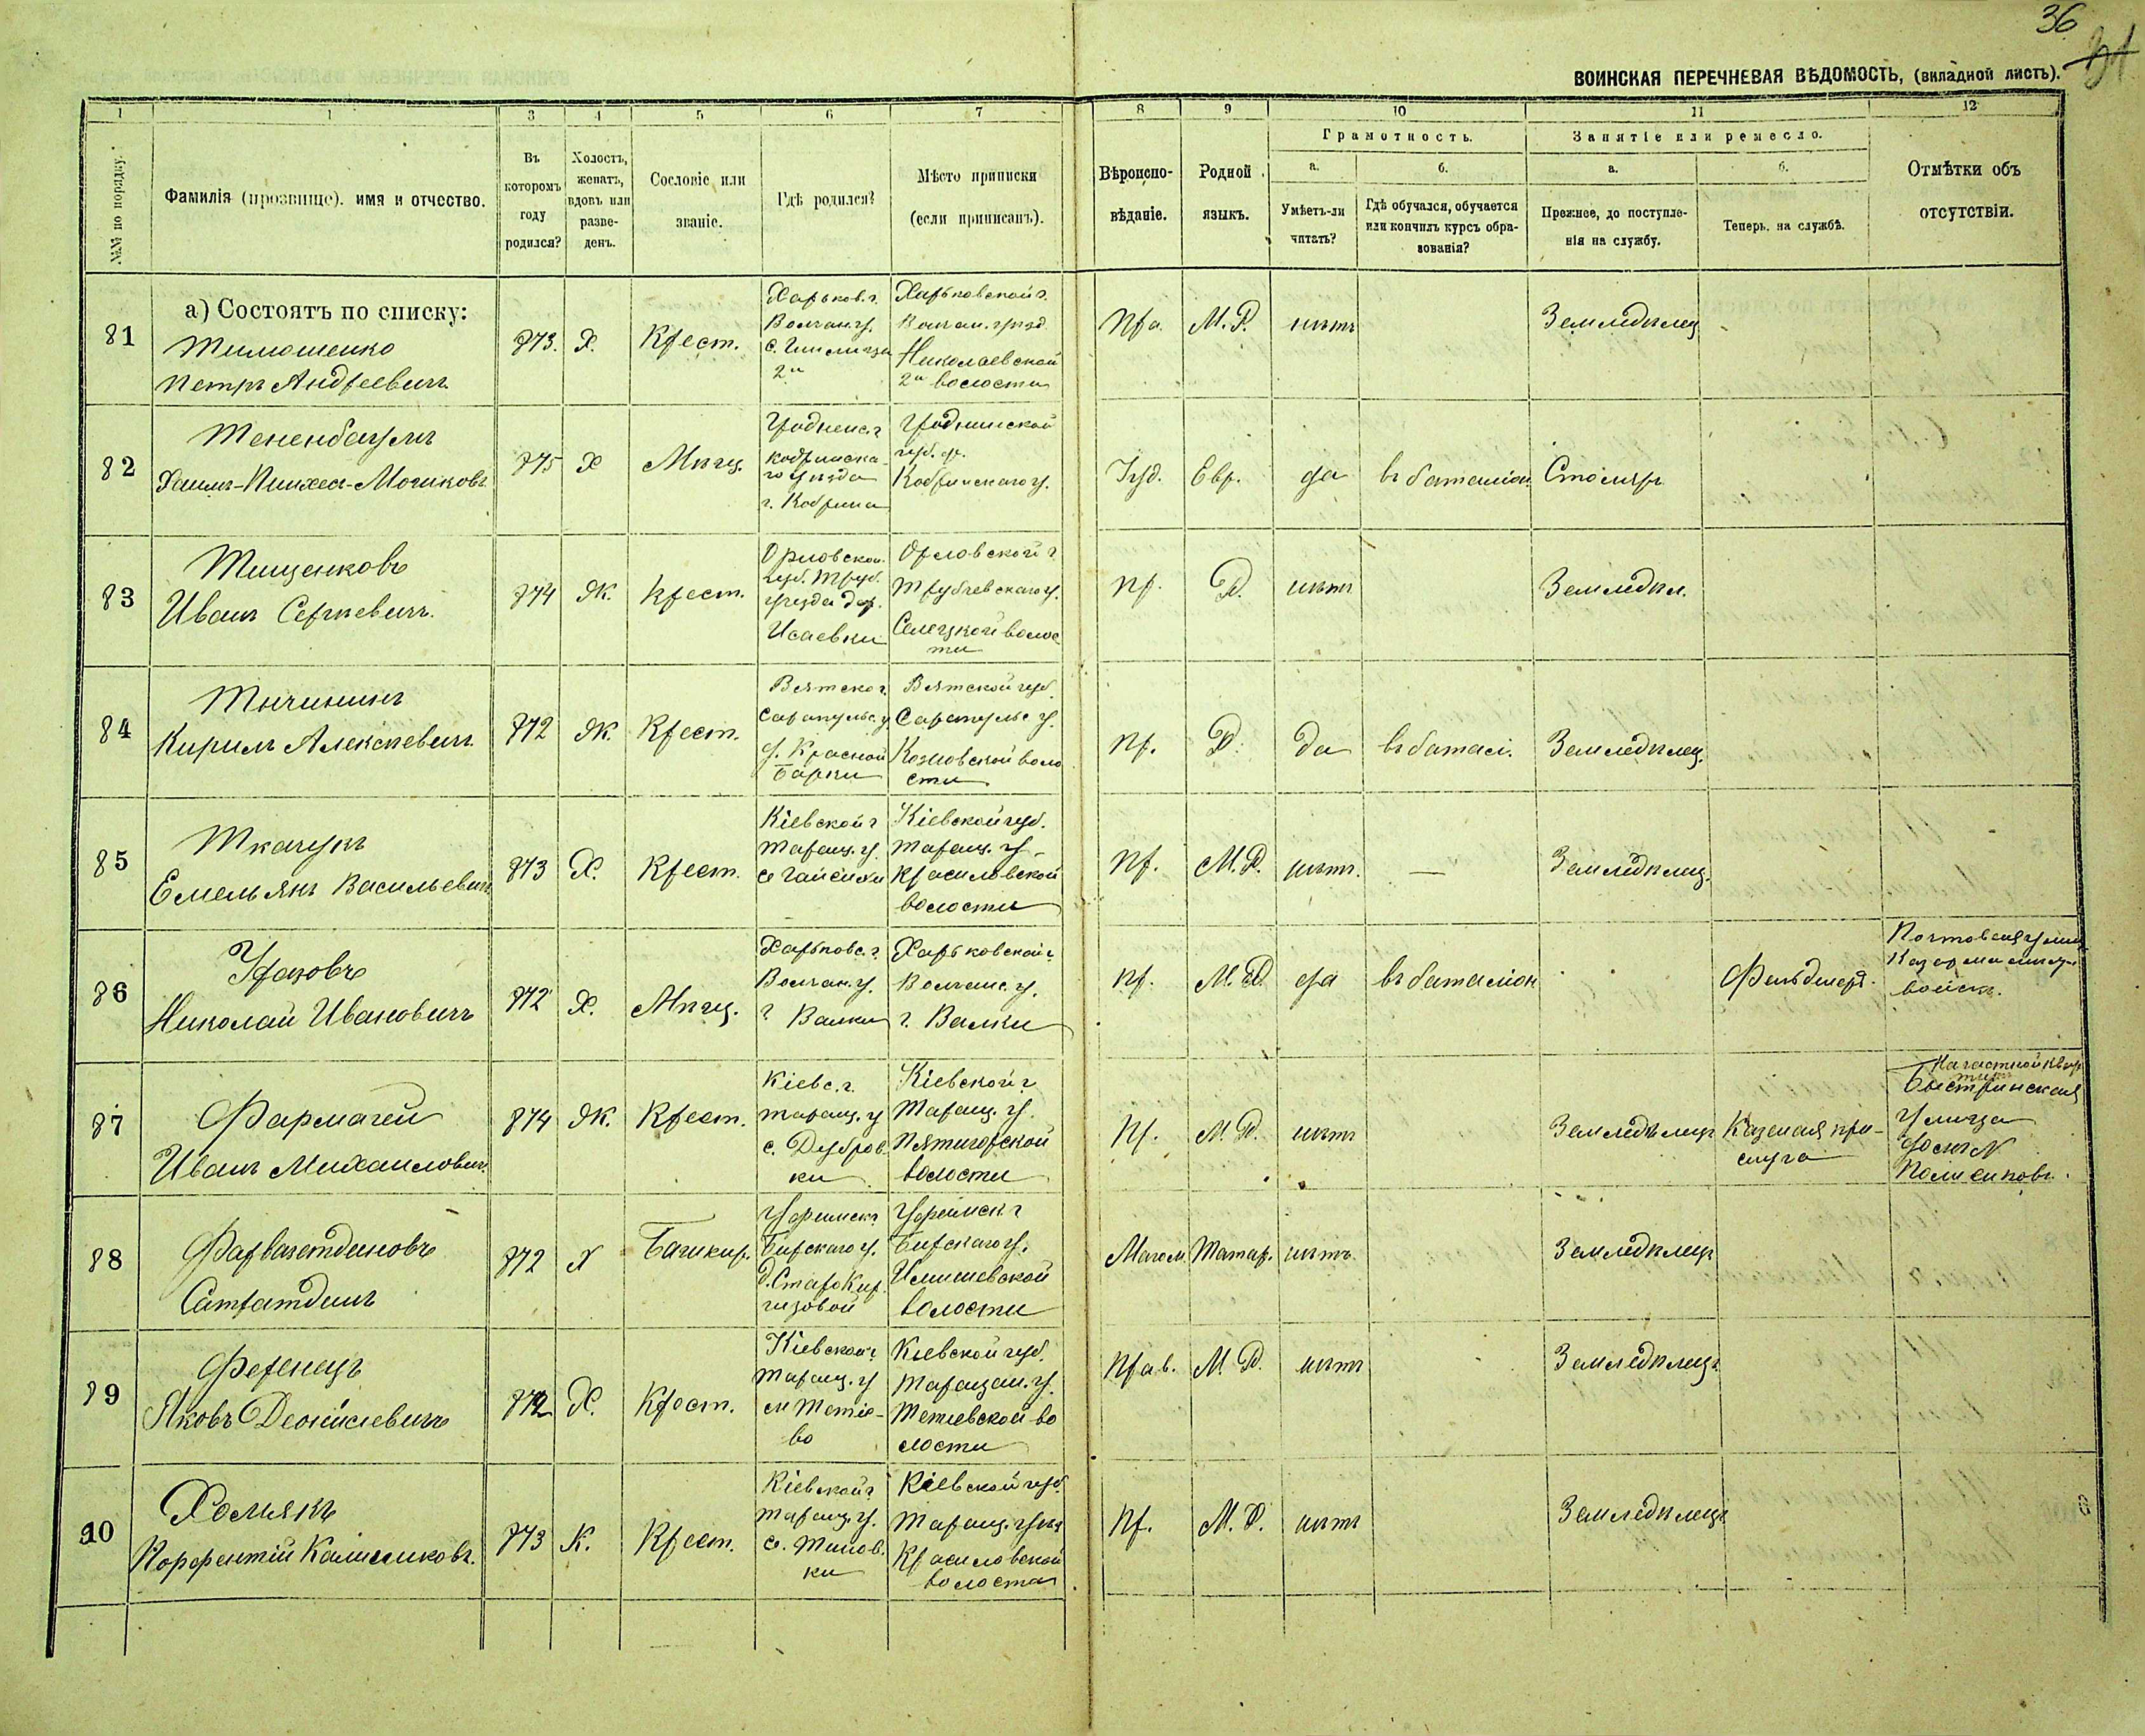 36
ВОИНСКАЯ ПЕРЕЧНЕВАЯ ВѢДОМОСТЬ, (вкладной листъ).
1 1 3 4 5 6 7 8 9 10 11 12
№№ по порядку.
Фамилія (прозвище), имя и отчество.
Въ
которомъ
году
родился?
Холостъ,
женатъ,
вдовъ или
разве-
денъ.
Сословіе или
званіе.
Гдѣ родился?
Мѣсто приписки
(если приписанъ).
Вѣроиспо-
вѣданіе.
Родной
языкъ.
Грамотность.
а.
Умѣетъ-ли
читать?
б.
Гдѣ обучался, обучается
или кончилъ курсъ обра-
зованія?
Занятіе или ремесло.
а.
Прежнее, до поступле-
нія на службу.
б.
Теперь, на службѣ.
Отмѣтки объ
отсутствіи.
а) Состоятъ по списку:
81
Тимошенко
Петръ Андреевичъ
873.
Х.
Крест.
Харьков. г.
Волчан. у.
2й
Харьковской г.
Волчан. уѣзд.
Николаевской
2й волости
Пра.
М. Р.
нѣтъ
Земледѣлец
82
Тененбаумъ
Хаимъ-Пинхес-Мошковъ
875
Х
Мѣщ.
Гроднен. г
кобринска-
го уѣзда
г. Кобрина
Гродненской
губ.
Кобринскаго у.
Іуд.
Евр.
да
въ баталіон.
Столяръ
83
Тищенковъ
Иванъ Сергѣевичъ.
874
Ж.
крест.
Орловской
губ. Труб.
уѣзда дер.
Исаевки
Орловской г
Трубчевскаго у.
Селецкой волос
ти
Пр.
Р.
нѣтъ
Земледѣл.
84
Тючининъ
Кирилъ Алексѣевичъ.
872
Ж.
Крест.
Вятской г.
Сарапульс. у
д. Красной
Барки
Вятской губ.
Сарапульс у.
Козловской воло
сти
Пр.
Р.
да
въ батал.
Земледѣлец.
85
Ткачукъ
Емельянъ Васильевичъ
873
Х.
Крест.
Кіевской г
Таращ. у.
Кіевской губ.
Таращ. у.
Красиловской
волости
Пр.
М. Р.
нѣтъ.
—
Земледѣлец.
86
Уразовъ
Николай Ивановичъ
872
Х.
Мѣщ.
Харьковс. г.
Волчан. у.
г Валки
Харьковской г.
Волчанс. у.
г. Валки
пр.
М. Р.
да
въ баталіон
Фельдшер.
Почтовая улиц.
Казарма
войск.
87
Фармагей
Иванъ Михаиловичъ
874
Ж.
Крест.
Кіевс. г.
Таращ. у
с. Дубров-
ки
Кіевской г
Таращ. у.
Пятигорской
волости
Пр.
М. Р.
нѣтъ
Земледѣлецъ
Казеная при-
слуга
На частной квар
тирѣ
Быстринская
улица
домъ N
Полисиковъ.
88
Фарвагетдиновъ
Сатратдинъ
872
Х
Башкир.
Уфимск г
Бирскаго у.
д. Старокир-
гизовой
Уфимск. г
Бирскаго у.
Илишевской
волости
Магом
Татар.
нѣтъ
Земледѣлецъ
89
Ференецъ
Яковъ Деонисіевичъ
872
Х.
Крест.
Кіевской г.
Таращ. у
м Тетіе-
во
Кіевской губ.
Таращан. у.
Тетіевской во
лости
Прав.
М. Р.
нѣтъ
Земледѣлецъ.
Хомякъ
873
Крест.
Кіевской г
Таращ. у.
ки
Кіевской губ.
Таращ. уѣз
Красиловской
волости
Пр.
М. Р.
нѣтъ
Земледѣлецъ